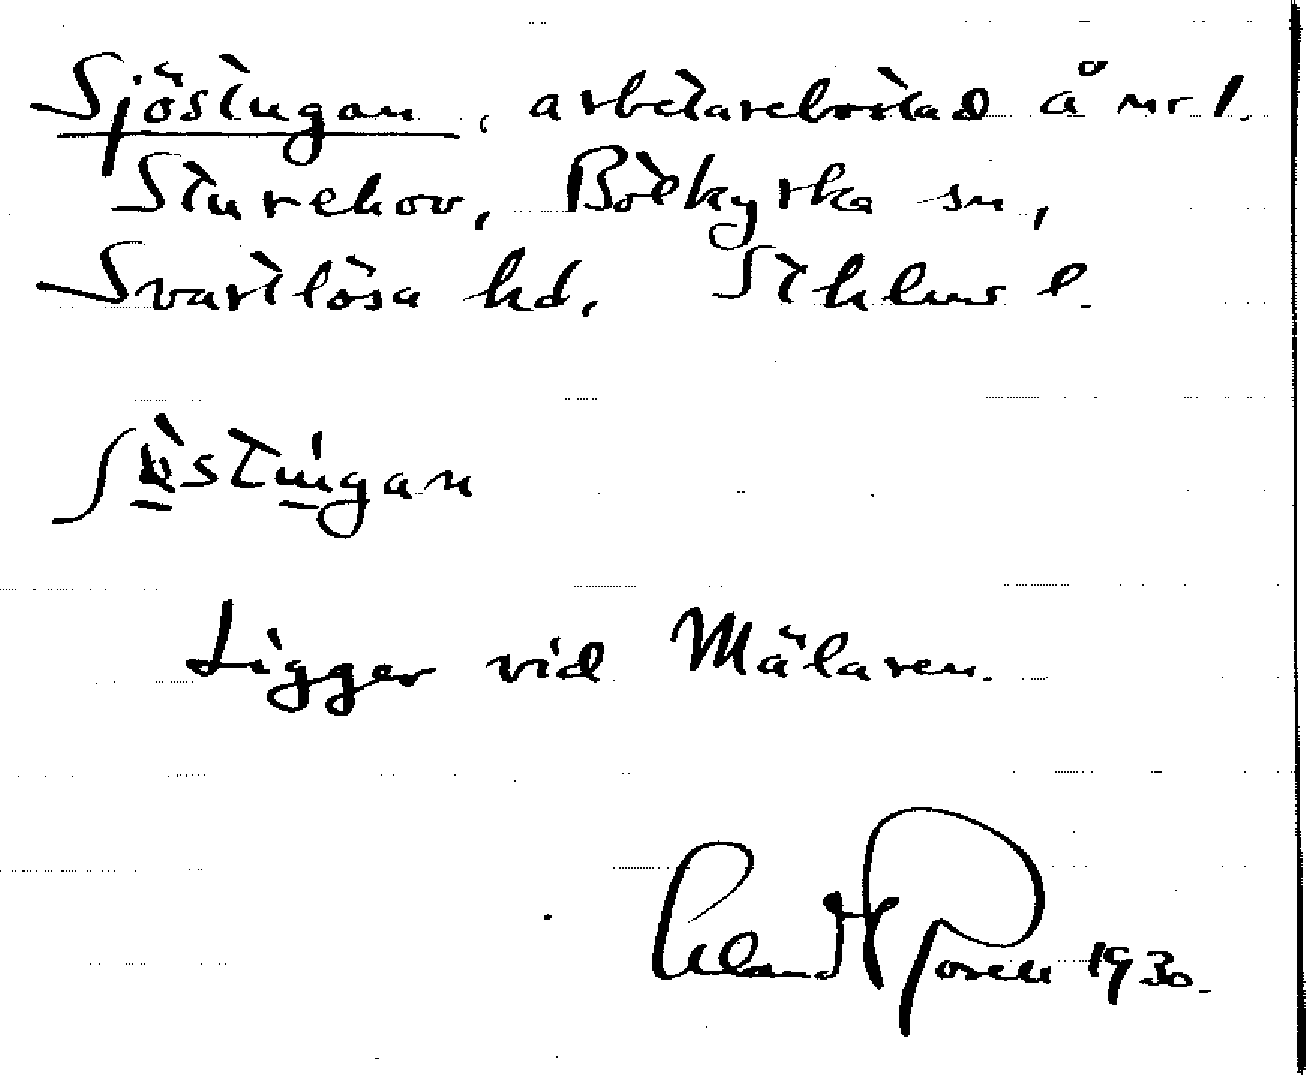 Sjöstugan, arbetarebostad å nr 1.
Sturehov, Botkyrka sn,
Svartlösa hd. Sthlms l.
Ligger vid Mälaren.
Rosell 1930.